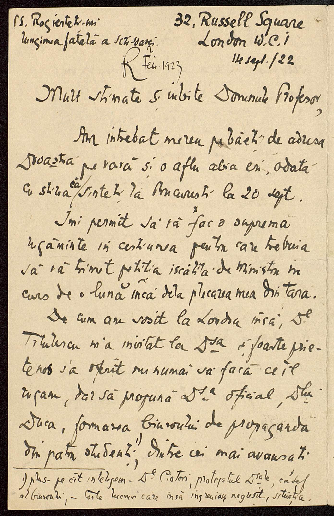 P.S. Rog iertati-mi
lungimea fatală a scrisorei
32, Russell Square
London W.C.1
14 sept./22
R Feb 1923
Mult stimate și iubite Domnule Profesor,
Am întrebat mereu pe băeți de adresa
Dvoastră pe vară și o aflu abia eri, odată
cu știrea că sînteți la București la 20 sept.
Îmi permit să vă fac o supremă
rugăminte în chestiunea pentru care trebuia
să vă trimit petiția iscălită de Ministru în
curs de o lună încă dela plecarea mea din țară.
De cum am sosit la Londra încă, Dl
Titulescu m'a invitat la Dsa și foarte prie-
tenos s'a oferit nu numai să facă ce îl
rugam, dar să propună Dsa oficial, Dlui
Duca, formarea biuroului de propagandă
din patru studenți¹), dintre cei mai avansați
1) plus - pe cît înțelegem - Dl Ciotori, protejatul Dsale, ca șef
al biuroului, -